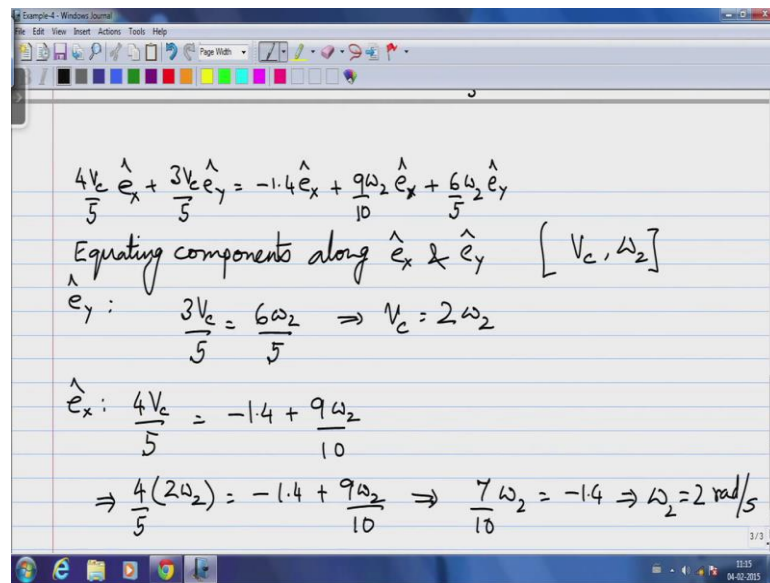 Example-4 - Windows Journal
File Edit View Insert Actions Tools Help
Page Width
4Vc/5 êx + 3Vc/5 êy = -1.4 êx + 9ω2/10 êx + 6ω2/5 êy
Equating components along êx & êy [Vc, ω2]
êy : 3Vc/5 = 6ω2/5 ⇒ Vc = 2ω2
êx : 4Vc/5 = -1.4 + 9ω2/10
⇒ 4/5 (2ω2) = -1.4 + 9ω2/10 ⇒ 7/10 ω2 = -1.4 ⇒ ω2 = 2 rad/s
3/3
11:15
04-02-2015